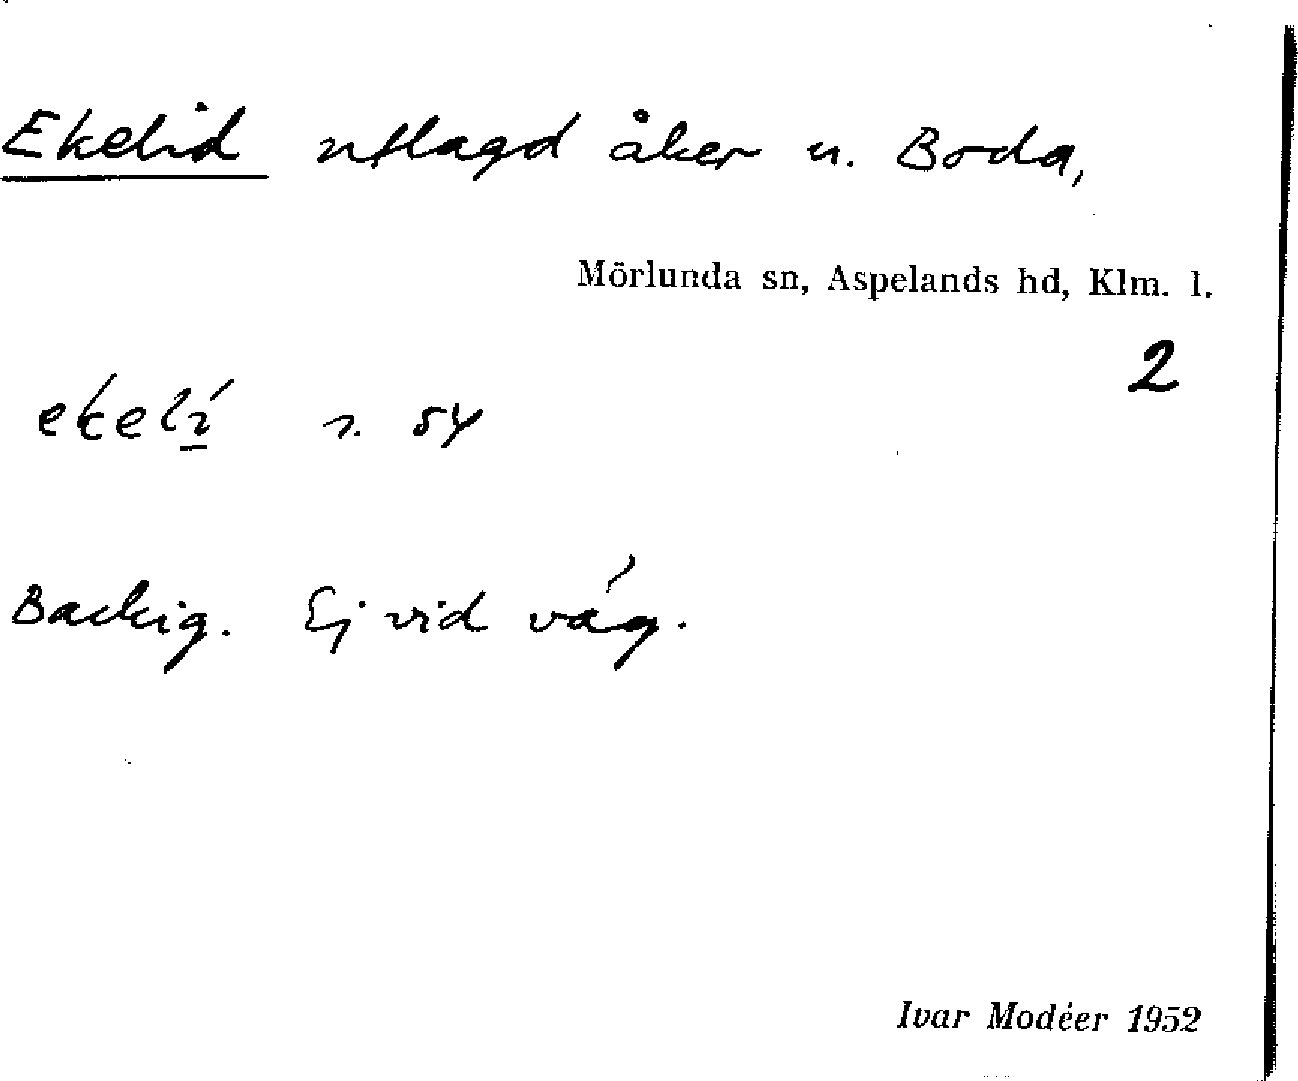 Ekelid utlagd åker u. Boda,
Mörlunda sn, Aspelands hd, Klm. l.
2
s. 54
Backig. Ej vid väg.
Ivar Modéer 1952